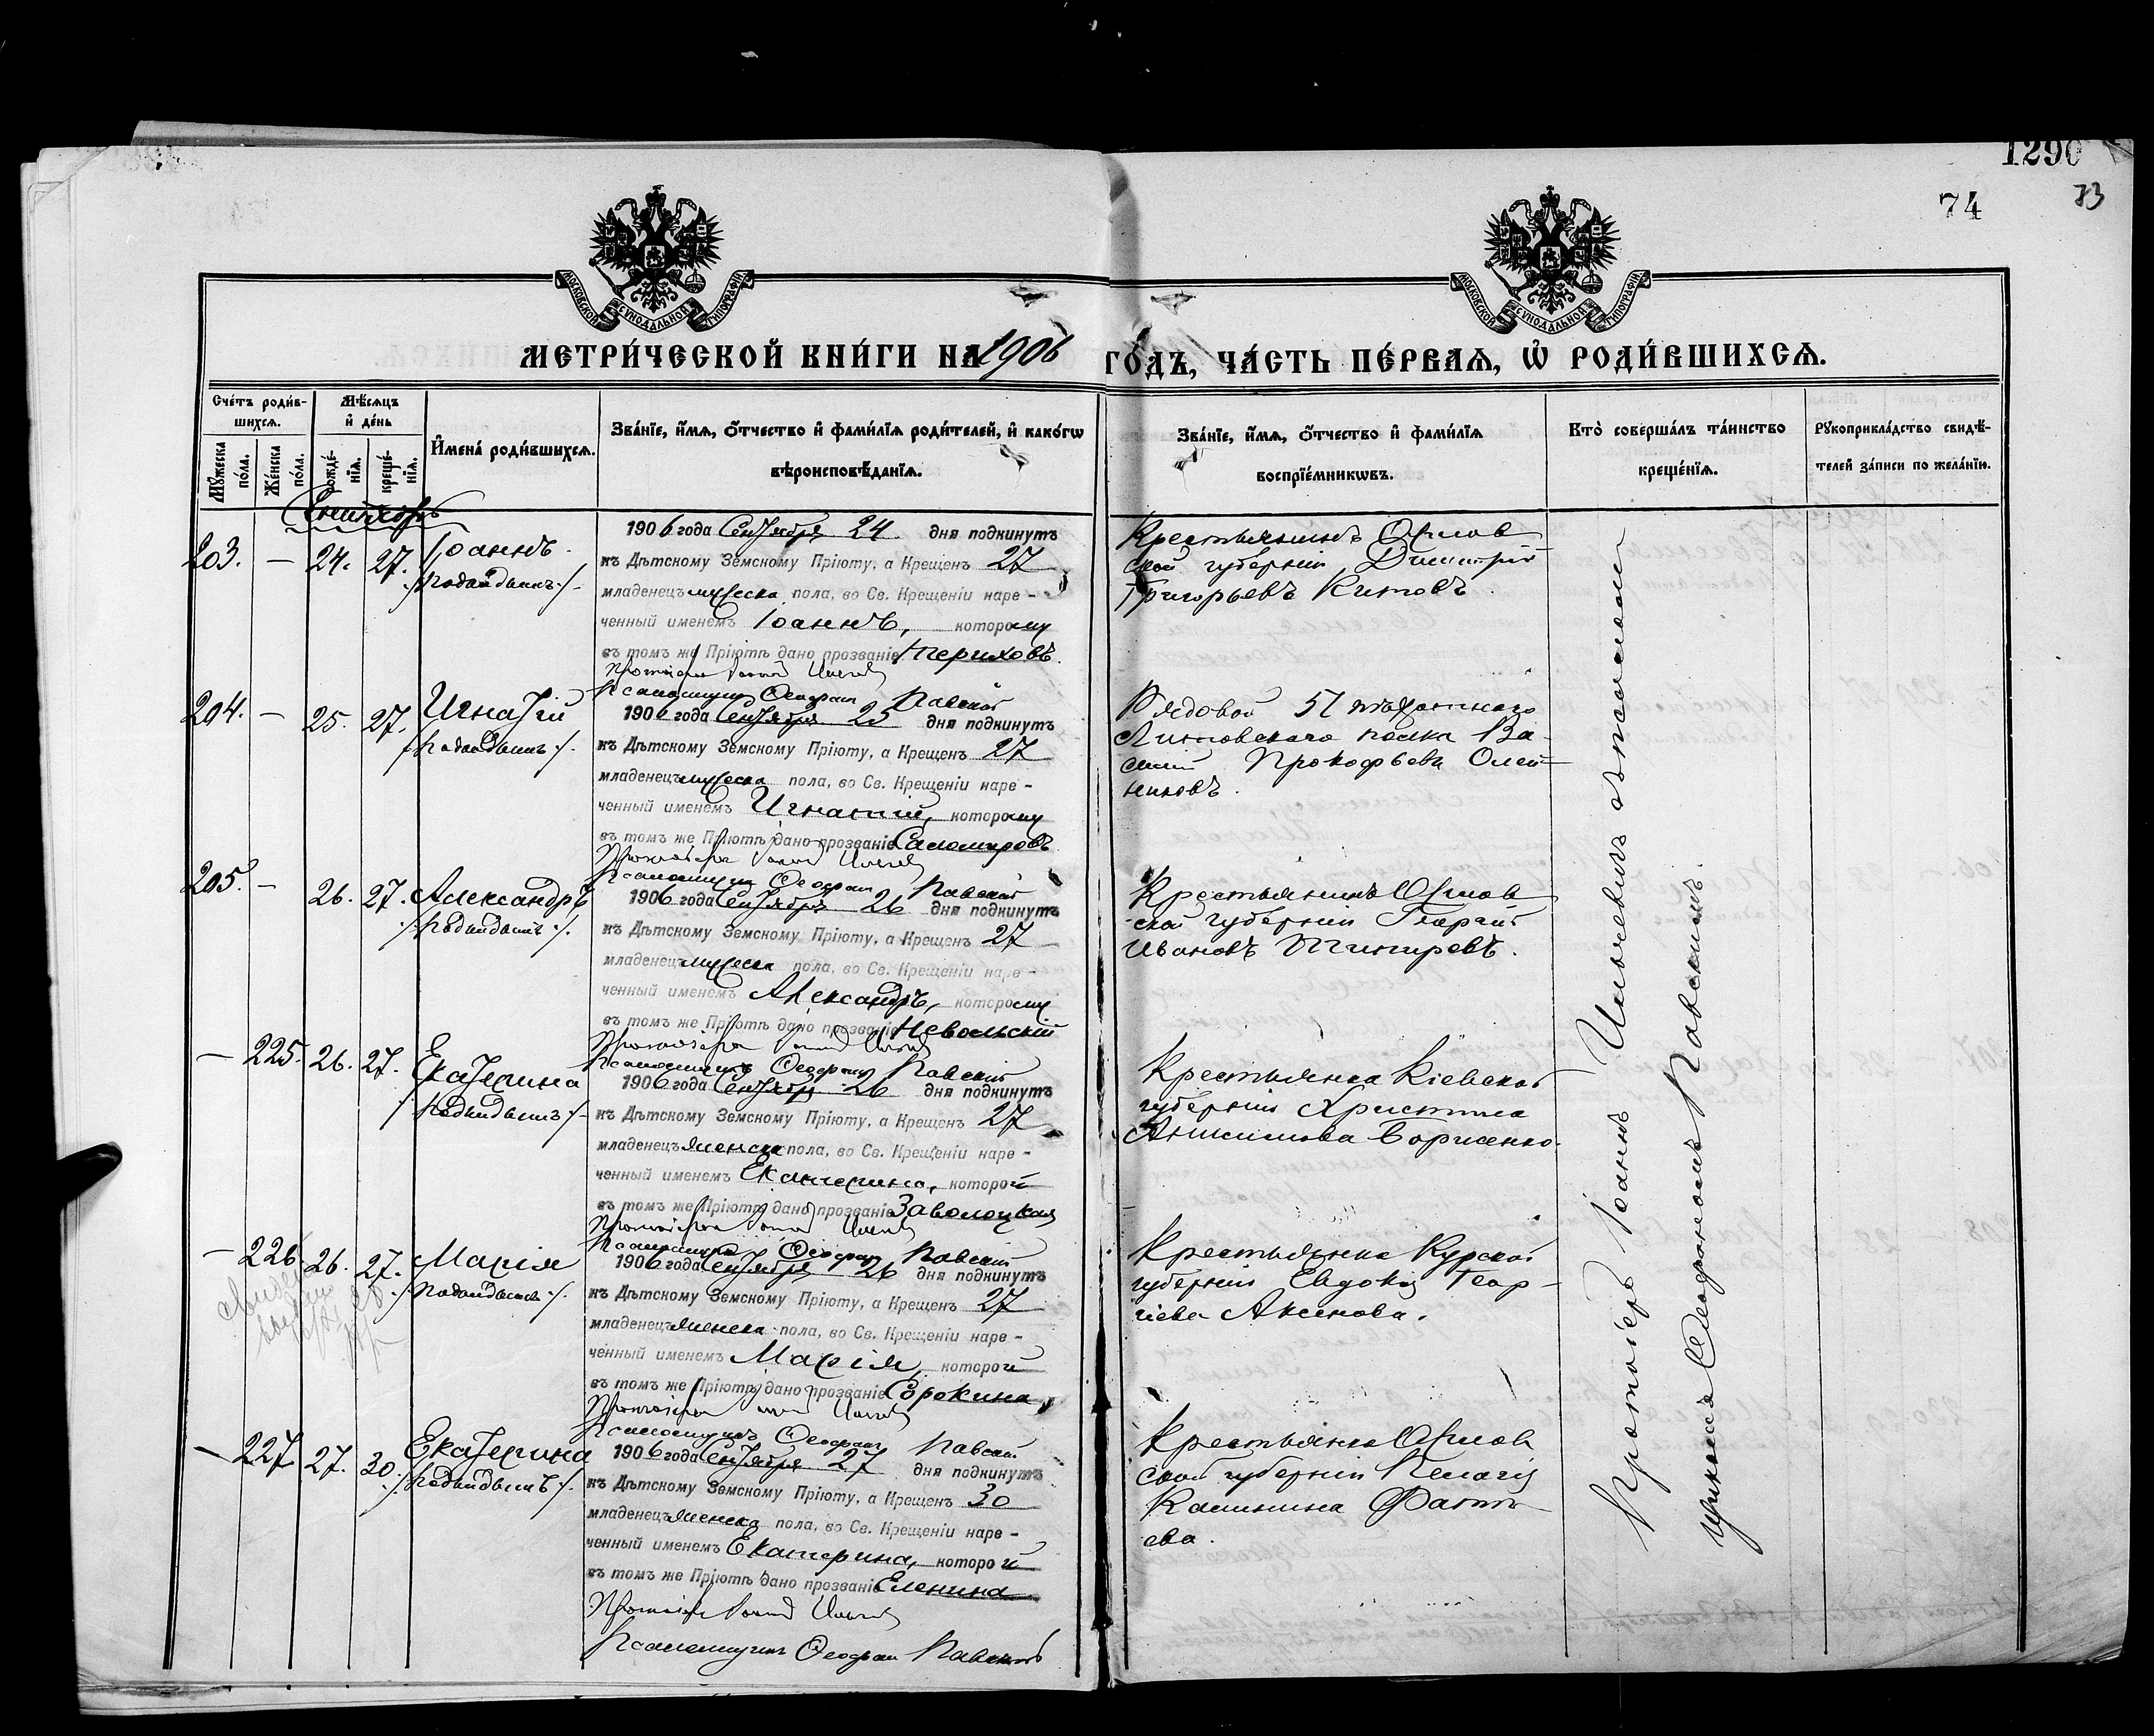 1290
74
73
МОСКОВСКОЙ СѴНОДАЛЬНОЙ ТИПОГРАФІИ
МОСКОВСКОЙ СѴНОДАЛЬНОЙ ТИПОГРАФІИ
МЕТРИ́ЧЕСКОЙ КНИ́ГИ НА 1906 ГО́ДЪ, ЧА́СТЬ ПЕ́РВАѦ, Ѡ҆ РОДИ́ВШИХСѦ.
Сче́тъ роди́в-
шихсѧ.
Мꙋ́жеска по́ла.
Же́нска по́ла.
Мѣ́сѧцъ
и҆ де́нь
рожде́-
нїѧ.
креще́-
нїѧ.
И҆мена̀ роди́вшихсѧ.
Зва́нїе, и҆́мѧ, ѻ҆́тчество и҆ фами́лїѧ роди́телей, и҆ како́гѡ
вѣроисповѣ́данїѧ.
Зва́нїе, и҆́мѧ, ѻ҆́тчество и҆ фами́лїѧ
воспрїе́мникѡвъ.
Кто̀ соверша́лъ та́инство
креще́нїѧ.
Рꙋкоприкла́дство свидѣ́-
телей за́писи по жела́нїю.
Сентябрь
203. — 24. 27. Іоаннъ
/Подкидышъ/
1906 года Сентября 24 дня подкинутъ
къ Дѣтскому Земскому Пріюту, а Крещенъ 27
младенецъ мужеска пола, во Св. Крещеніи наре-
ченный именемъ Іоаннъ, которому
въ томъ же Пріютѣ дано прозваніе
Протоіерей Іоаннъ
Псаломщикъ Ѳеофанъ Павскій
Крестьянинъ Орлов
ской губерніи Димитрій
Григорьевъ Китовъ.
204. — 25. 27. Игнатій
/Подкидышъ/.
1906 года Сентября 25 дня подкинутъ
къ Дѣтскому Земскому Пріюту, а Крещенъ 27
младенецъ мужеска пола, во Св. Крещеніи наре-
ченный именемъ Игнатій, которому
въ томъ же Пріютѣ дано прозваніе
Протоіерей Іоаннъ
Псаломщикъ Ѳеофанъ Павскій
Рядовой 51 пѣхотнаго
Литовскаго полка Ва-
силій Прокофьевъ Олей-
никовъ.
205. — 26. 27. Александръ
/Подкидышъ/.
1906 года Сентября 26 дня подкинутъ
къ Дѣтскому Земскому Пріюту, а Крещенъ 27
младенецъ мужеска пола, во Св. Крещеніи наре-
ченный именемъ Александръ, которому
въ томъ же Пріютѣ дано прозваніе Невольскій
Протоіерей Іоаннъ
Псаломщикъ Ѳеофанъ Павскій
Крестьянинъ Орлов
ской губерніи Георгій
Ивановъ
— 225. 26. 27. Екатерина
/Подкидышъ/
1906 года Сентября 26 дня подкинутъ
къ Дѣтскому Земскому Пріюту, а Крещенъ 27
младенецъ женска пола, во Св. Крещеніи наре-
ченный именемъ Екатерина, которой
въ томъ же Пріютѣ дано прозваніе Заволоцкая
Протоіерей Іоаннъ
Псаломщикъ Ѳеофанъ Павскій
Крестьянка Кіевской
губерніи Христина
Анисимова Борисенко.
— 226. 26. 27. Марія
/Подкидышъ/.
1906 года Сентября 26 дня подкинутъ
къ Дѣтскому Земскому Пріюту, а Крещенъ 27
младенецъ женска пола, во Св. Крещеніи наре-
ченный именемъ Марія, которой
въ томъ же Пріютѣ дано прозваніе Сорокина
Протоіерей Іоаннъ
Псаломщикъ Ѳеофанъ Павскій
Крестьянка Курской
губерніи Евдокія Геор-
гіева Аксенова.
— 227 27. 30. Екатерина
/Подкидышъ/.
1906 года Сентября 27 дня подкинутъ
къ Дѣтскому Земскому Пріюту, а Крещенъ 30
младенецъ женска пола, во Св. Крещеніи наре-
ченный именемъ Екатерина, которой
въ томъ же Пріютѣ дано прозваніе Еленина
Протоіерей Іоаннъ
Псаломщикъ Ѳеофанъ Павскій
Крестьянка Орлов
ской губерніи Пелагія
Калинина
ева.
Протоіерей Іоаннъ съ псалом-
щикомъ Ѳеофаномъ Павскимъ.